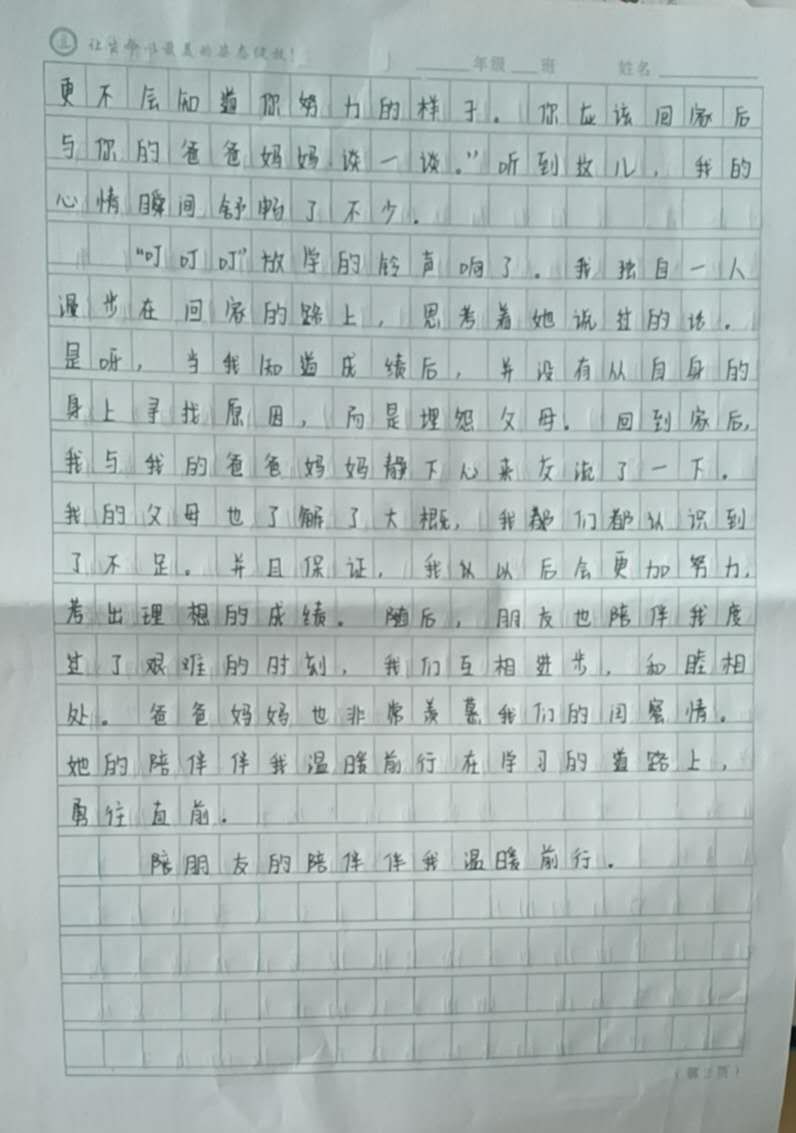 让生命以最美的姿态绽放！ 年级 班 姓名
更不会知道你努力的样子。你应该回家后
与你的爸爸妈妈谈一谈。”听到这儿，我的
心情瞬间舒畅了不少．
“叮叮叮”放学的铃声响了。我独自一人
漫步在回家的路上，思考着她说过的话．
是呀，当我知道成绩后，并没有从自身的
身上寻找原因，而是埋怨父母．回到家后，
我与我的爸爸妈妈静下心来交流了一下．
我的父母也了解了大概，我都们都认识到
了不足。并且保证，我从以后会更加努力，
考出理想的成绩。随后，朋友也陪伴我度
过了艰难的时刻，我们互相进步，和睦相
处。爸爸妈妈也非常羡慕我们的闺蜜情．
她的陪伴伴我温暖前行在学习的道路上，
勇往直前．
陪朋友的陪伴伴我温暖前行．
（第2页）